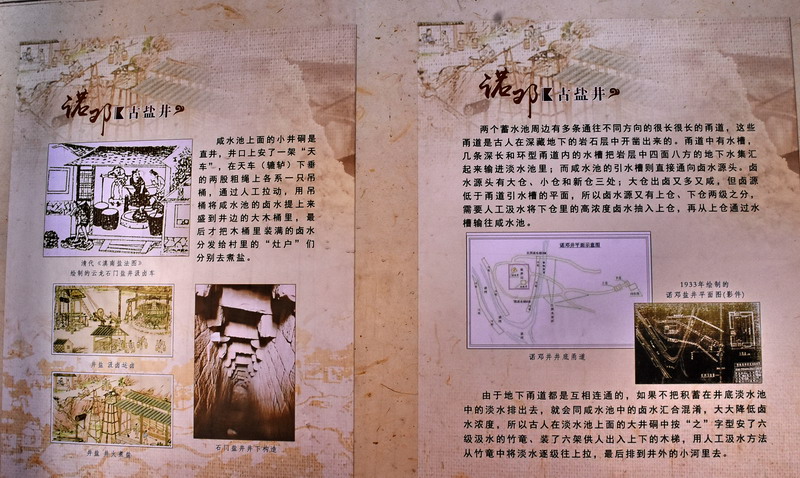 诺邓 古盐井
咸水池上面的小井硐是
直井，井口上安了一架“天
车”，在天车（辘轳）下垂
的两股粗绳上各系一只吊
桶，通过人工拉动，用吊
桶将咸水池的卤水提上来
盛到井边的大木桶里，最
后才把木桶里装满的卤水
分发给村里的“灶户”们
分别去煮盐。
清代《滇南盐法图》
绘制的云龙石门盐井汲卤车
井盐 汲卤灶卤
井盐 井火煮盐
石门盐井井下构造
诺邓 古盐井
两个蓄水池周边有多条通往不同方向的很长很长的甬道，这些
甬道是古人在深藏地下的岩石层中开凿出来的。甬道中有水槽，
几条深长和环型甬道内的水槽把岩层中四面八方的地下水集汇
起来输进淡水池里；而咸水池的引水槽则直接通向卤水源头。卤
水源头有大仓、小仓和新仓三处；大仓出卤又多又咸，但卤源
低于甬道引水槽的平面，所以卤水源又有上仓、下仓两级之分，
需要人工汲水将下仓里的高浓度卤水抽入上仓，再从上仓通过水
槽输往咸水池。
诺邓井平面示意图
诺邓井井底甬道
1933年绘制的
诺邓盐井平面图(影件)
由于地下甬道都是互相连通的，如果不把积蓄在井底淡水池
中的淡水排出去，就会同咸水池中的卤水汇合混淆，大大降低卤
水浓度，所以古人在淡水池上面的大井硐中按“之”字型安了六
级汲水的竹竜、装了六架供人出入上下的木梯，用人工汲水方法
从竹竜中将淡水逐级往上拉，最后排到井外的小河里去。